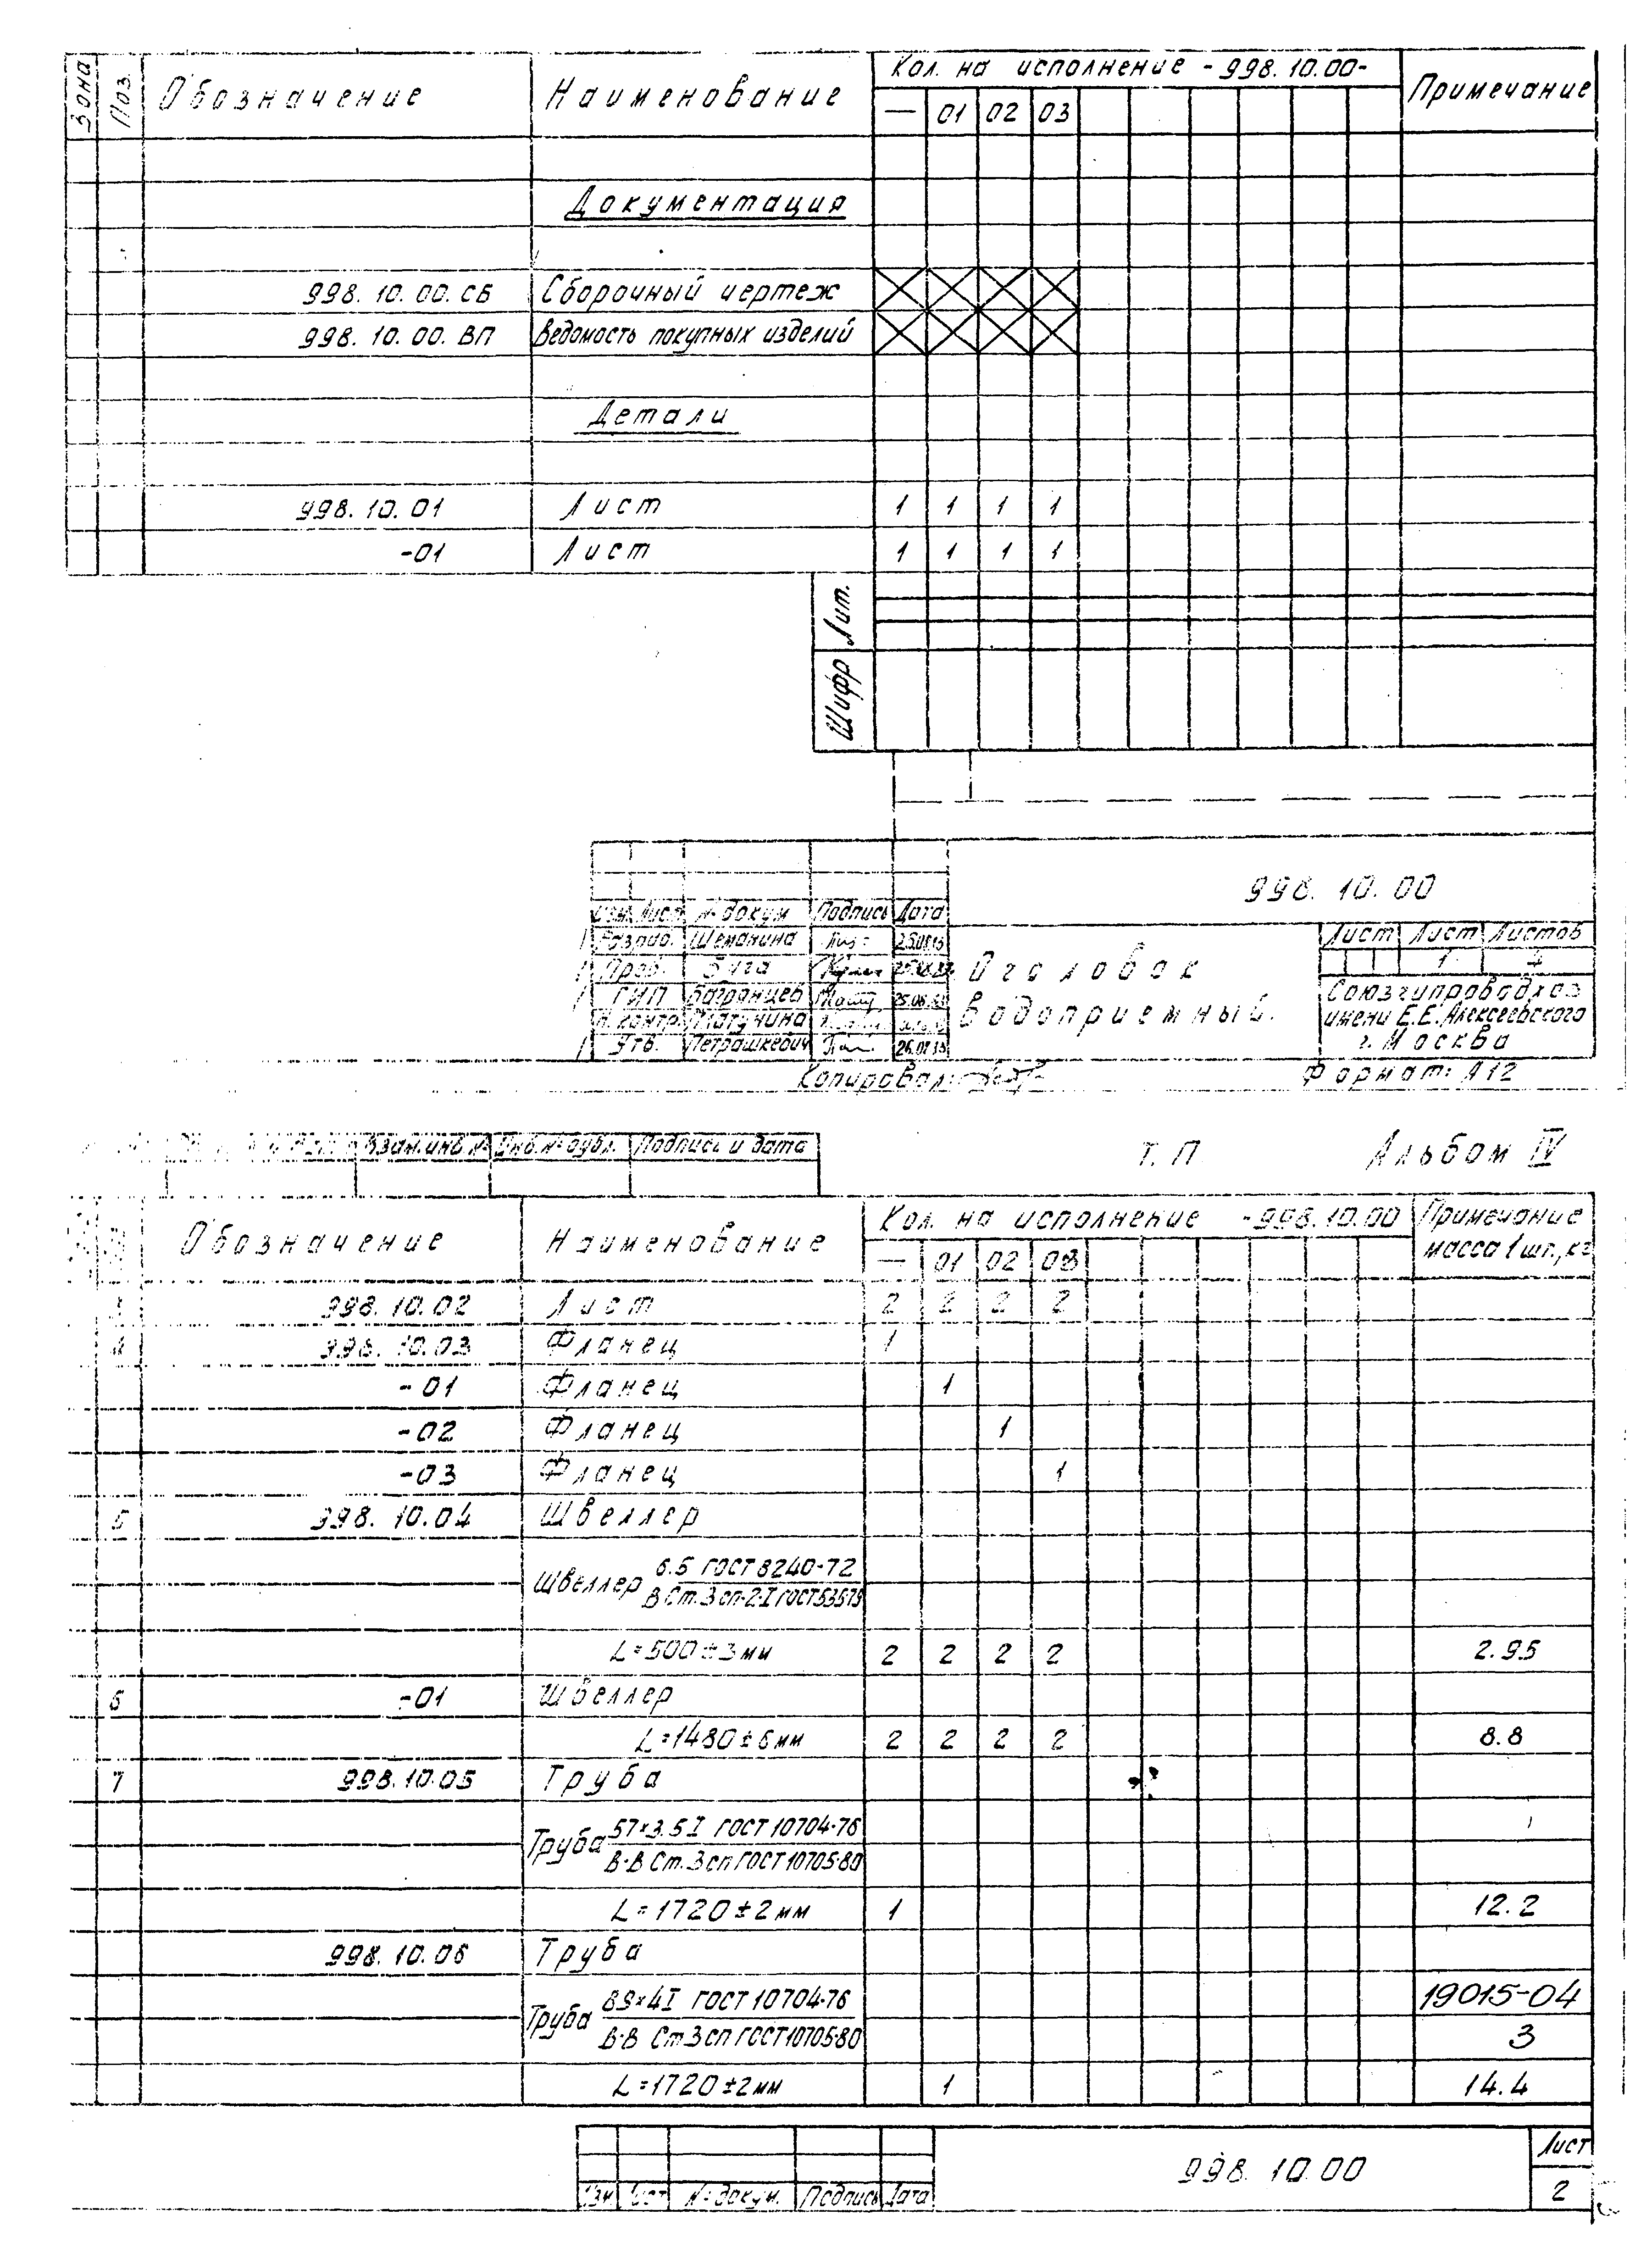 Зона Поз. Обозначение Наименование Кол. на исполнение -998.10.00- Примечание
— 01 02 03
Документация
998.10.00.СБ Сборочный чертеж
998.10.00.ВП Ведомость покупных изделий
Детали
998.10.01 Лист 1 1 1 1
-01 Лист 1 1 1 1
Лит.
Шифр
998.10.00
Изм. Лист № докум Подпись Дата
Разраб. Шеманина
Пров.
ГИП Багрянцев
Н.контр. Платунина
Утв. Петрашкевич
Оголовок
водоприемный.
Лист Лист Листов
1
Союзгипроводхоз
имени Е.Е.Алексеевского
г. Москва
Копировал: Формат: А12
Взам.инв.№ Инв.№ дубл. Подпись и дата
Т. П Альбом IV
Обозначение Наименование Кол. на исполнение -998.10.00 Примечание масса 1 шт., кг
— 01 02 03
3 998.10.02 Лист 2 2 2 2
4 998.10.03 Фланец 1
-01 Фланец 1
-02 Фланец 1
-03 Фланец 1
5 998.10.04 Швеллер
Швеллер 6.5 ГОСТ 8240-72
В Ст.3 сп-2-I ГОСТ535-79
L=500±3мм 2 2 2 2 2.95
6 -01 Швеллер
L=1480±6мм 2 2 2 2 8.8
7 998.10.05 Труба
Труба 57×3.5 I ГОСТ 10704-76
В-В Ст.3 сп ГОСТ10705-80
L=1720±2мм 1 12.2
998.10.06 Труба
Труба 89×4 I ГОСТ 10704-76
В-В Ст3 сп ГОСТ10705-80
19015-04
3
L=1720±2мм 1 14.4
Изм Лист № докум. Подпись Дата
998.10.00
Лист
2